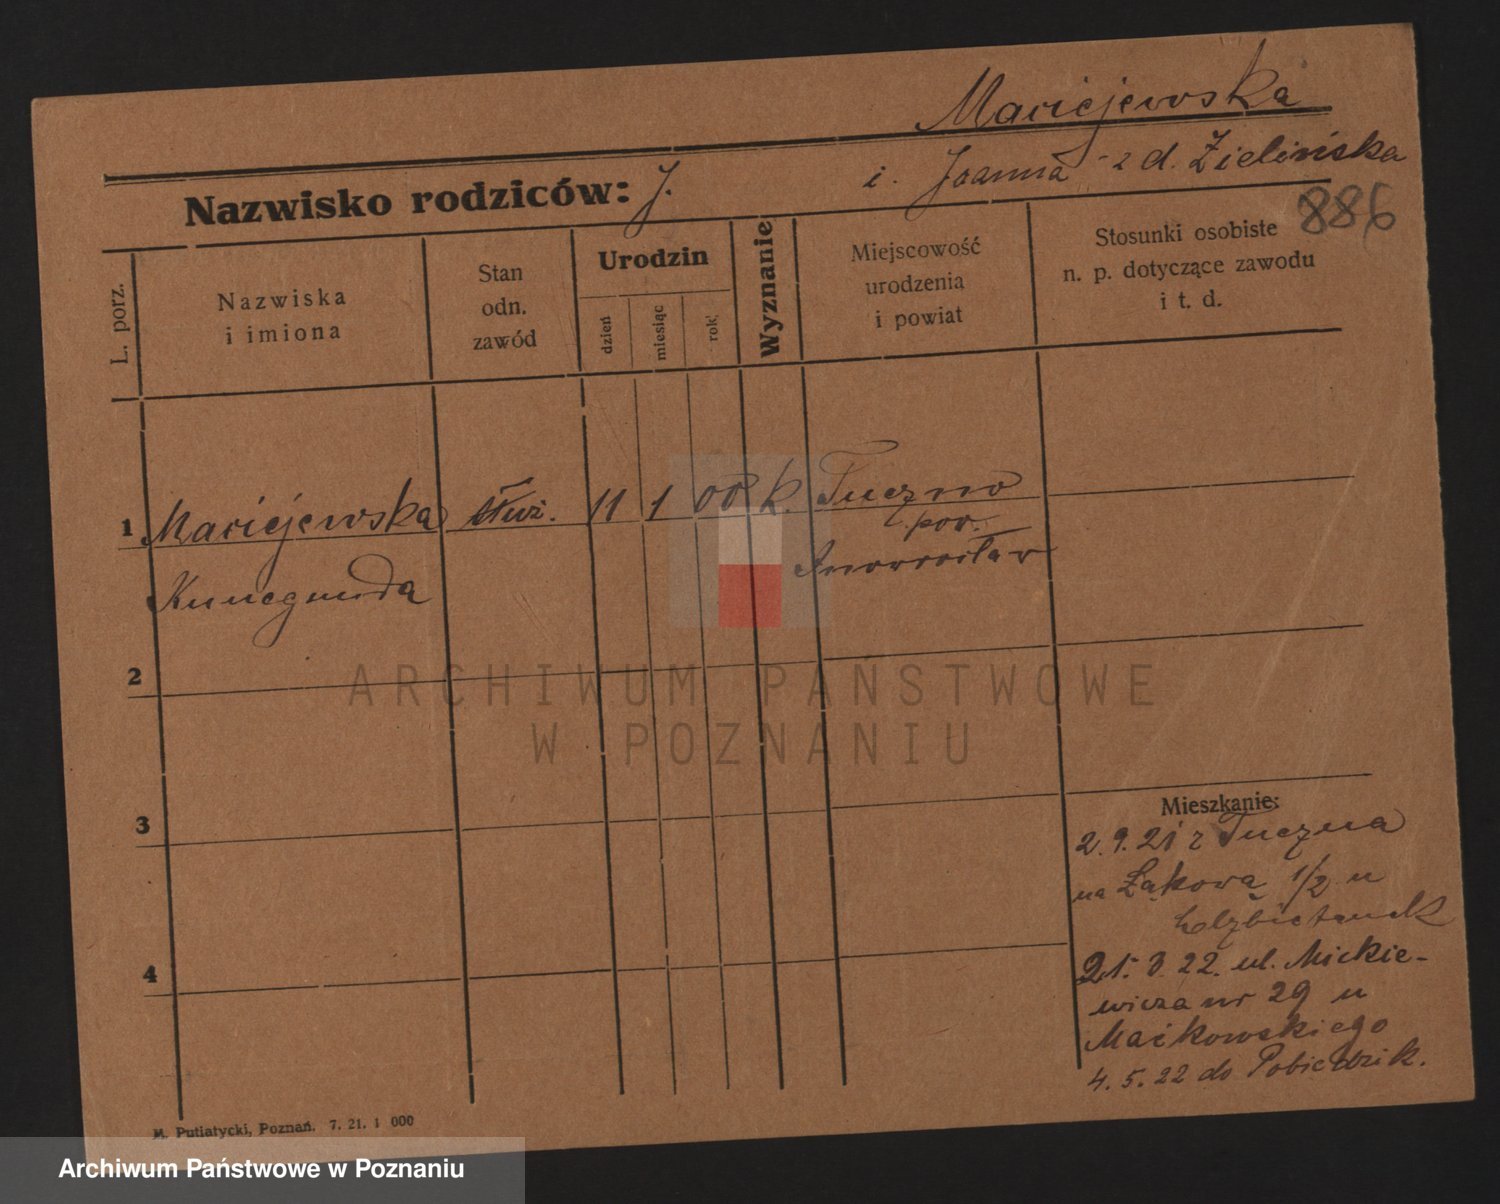 Maciejewska
Nazwisko rodziców: J. i. Joanna z d. Zielińska
886
L. porz.
Nazwiska
i imiona
Stan
odn.
zawód
Urodzin
dzień
miesiąc
rok
Wyznanie
Miejscowość
urodzenia
i powiat
Stosunki osobiste
n. p. dotyczące zawodu
i t. d.
1 Maciejewska służ. 11 1 00 k. Tuczno
pow.
Kunegunda Inowrocław
2
3
4
Mieszkanie:
2. 9. 21 z Tuczna
na Łąkową 1/2 u
Elżbietanek
21. 3. 22. ul. Mickie-
wicza nr 29 u
Maćkowskiego
4. 5. 22 do Pobiedzisk.
M. Putiatycki, Poznań. 7. 21. 1 000
ARCHIWUM PAŃSTWOWE
W POZNANIU
Archiwum Państwowe w Poznaniu